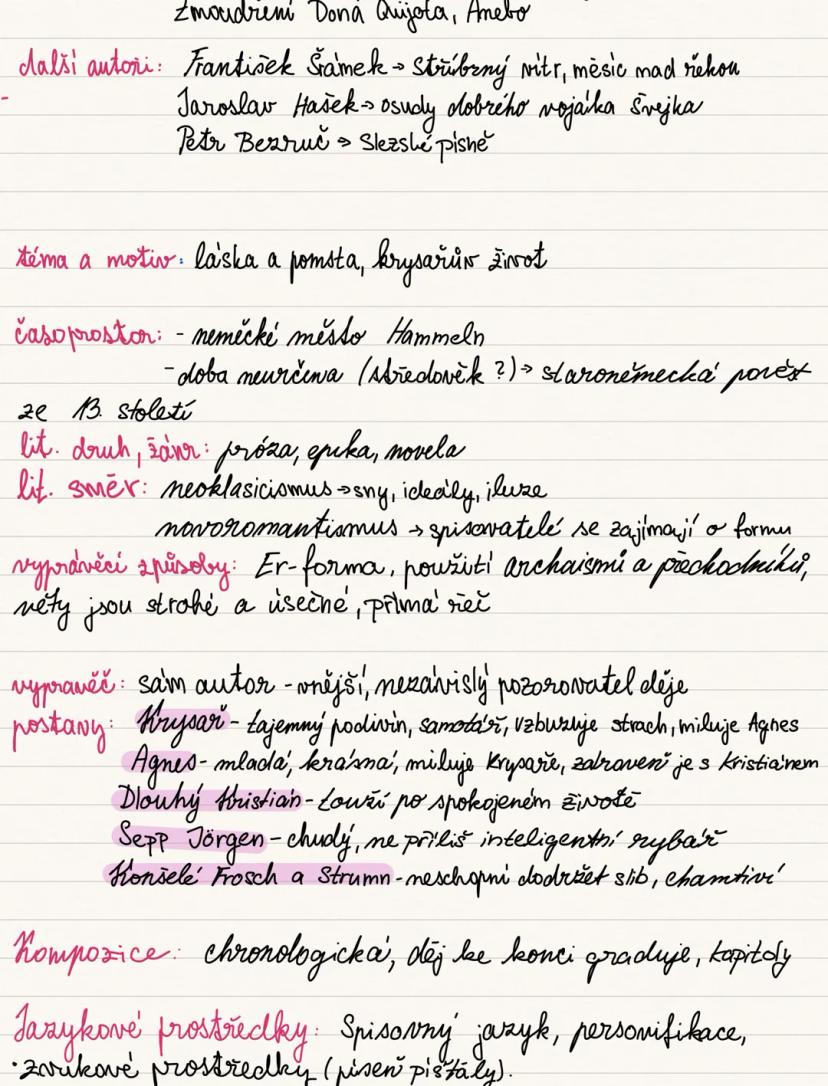 Zmoudření Dona Quijota, Anebo
další autoři: František Šrámek → Stříbrný vítr, měsíc nad řekou
Jaroslav Hašek → osudy dobrého vojáka švejka
Petr Bezruč → Slezské písně
téma a motiv: láska a pomsta, krysařův život
časoprostor: - německé město Hammeln
- doba neurčena (středověk ?) → staroněmecká pověst
ze 13. století
lit. druh, žánr: próza, epika, novela
lit. směr: neoklasicismus → sny, ideály, iluze
novoromantismus → spisovatelé se zajímají o formu
vyprávěcí způsoby: Er-forma, použití archaismů a přechodníků,
věty jsou strohé a úsečné, přímá řeč
vypravěč: sám autor - vnější, nezávislý pozorovatel děje
postavy: Krysař - tajemný podivín, samotář, vzbuzuje strach, miluje Agnes
Agnes - mladá, krásná, miluje Krysaře, zároveň je s Kristiánem
Dlouhý Kristián - touží po spokojeném životě
Sepp Jörgen - chudý, ne příliš inteligentní rybář
Konšelé Frosch a Strumn - neschopní dodržet slib, chamtiví
Kompozice: chronologická, děj ke konci graduje, kapitoly
Jazykové prostředky: Spisovný jazyk, personifikace,
·zvukové prostředky (píseň píšťaly).